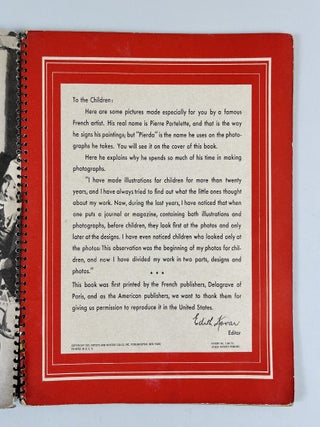 To the Children:
Here are some pictures made especially for you by a famous
French artist. His real name is Pierre Portelette, and that is the way
he signs his paintings; but "Pierda" is the name he uses on the photo-
graphs he takes. You will see it on the cover of this book.
Here he explains why he spends so much of his time in making
photographs.
"I have made illustrations for children for more than twenty
years, and I have always tried to find out what the little ones thought
about my work. Now, during the last years, I have noticed that when
one puts a journal or magazine, containing both illustrations and
photographs, before children, they look first at the photos and only
later at the designs. I have even noticed children who looked only at
the photos! This observation was the beginning of my photos for chil-
dren, and now I have divided my work in two parts, designs and
photos."
* * *
This book was first printed by the French publishers, Delagrave of
Paris, and as the American publishers, we want to thank them for
giving us permission to reproduce it in the United States.
Editor